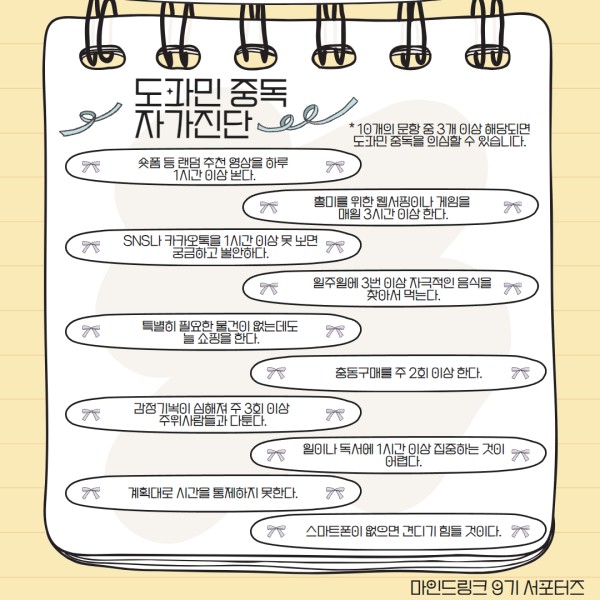 도파민 중독
자가진단
* 10개의 문항 중 3개 이상 해당되면
도파민 중독을 의심할 수 있습니다.
숏폼 등 랜덤 추천 영상을 하루
1시간 이상 본다.
흥미를 위한 웹서핑이나 게임을
매일 3시간 이상 한다.
SNS나 카카오톡을 1시간 이상 못 보면
궁금하고 불안하다.
일주일에 3번 이상 자극적인 음식을
찾아서 먹는다.
특별히 필요한 물건이 없는데도
늘 쇼핑을 한다.
충동구매를 주 2회 이상 한다.
감정기복이 심해져 주 3회 이상
주위사람들과 다툰다.
일이나 독서에 1시간 이상 집중하는 것이
어렵다.
계획대로 시간을 통제하지 못한다.
스마트폰이 없으면 견디기 힘들 것이다.
마인드링크 9기 서포터즈